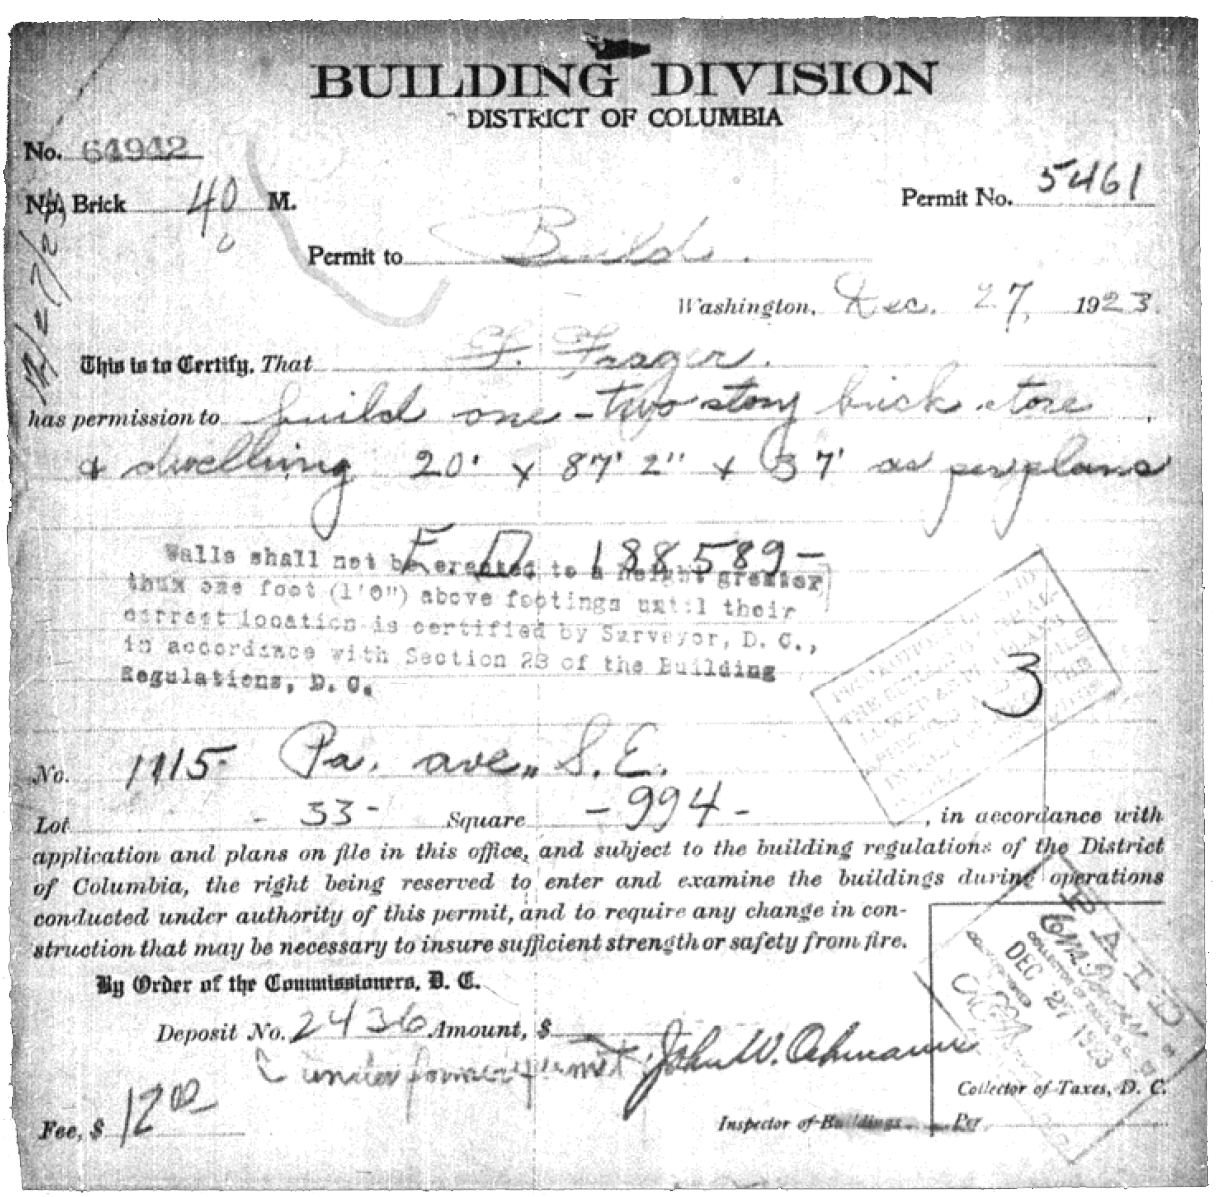 BUILDING DIVISION
DISTRICT OF COLUMBIA
No. 64942
No. Brick 40 M.
Permit No. 5461
Permit to Build.
Washington, Dec. 27, 1923
12/27/23
This is to Certify, That F. Frager.
has permission to build one - two story brick store
& dwelling 20' x 87' 2" x 37' as per plans
188589-
Walls shall not be erected to a height greater
than one foot (1'0") above footings until their
correct location is certified by Surveyor, D. C.,
in accordance with Section 28 of the Building
Regulations, D. C.
3
No. 1115 Pa. ave., S.E.
Lot - 33 - Square - 994 - , in accordance with
application and plans on file in this office, and subject to the building regulations of the District
of Columbia, the right being reserved to enter and examine the buildings during operations
conducted under authority of this permit, and to require any change in con-
struction that may be necessary to insure sufficient strength or safety from fire.
By Order of the Commissioners, D. C.
PAID
DEC 27 1923
Deposit No. 2436 Amount, $
under former permit John W. Oehmann
Collector of Taxes, D. C.
Fee, $ 12 00
Inspector of Buildings. Per